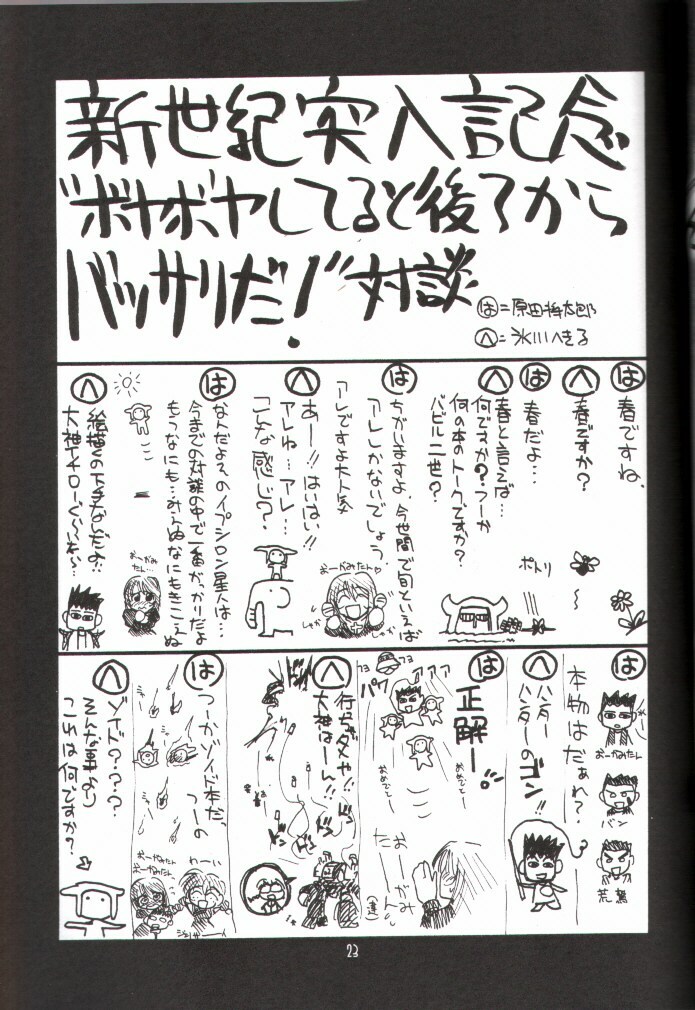 新世紀突入記念
"ボヤボヤしてると後ろから
バッサリだ!"対談
は=原田将太郎
へ=氷川へきる
は
春ですね。
へ
春ですか?
は
春だよ…
ポトリ
へ
春と言えば…
何ですか?つーか
何の本のトークですか?
バビル二世?
は
ちがいますよ、今世間で旬といえば
アレしかないでしょう。
アレですよ大人気
おーがみたん
へ
あー!!はいはい!!
アレね…アレ…
こんな感じ?
は
なんだよそのイプシロン星人は…
今までの対談の中で一番がっかりだよ
もうなにも…みえぬなにもきこえぬ
おーがみ
たん…
へ
絵描くの下手なんだよ…
大神イチローぐらいを…
は
本物はだぁれ?
おーがみたん
バン
荒鷲
へ
ハンター
ハンターのゴン!!
は
正解ー。
パワ
アアア
おめでとー
おめでとー
おーがみ
たん…
へ
行っちゃダメや!!
大神はーん!!
は
つーかゾイド本だっ
つーの
おーがみたん
おーがみたん
わーい
へ
ゾイド???
そんな事より
これは何ですか?
23